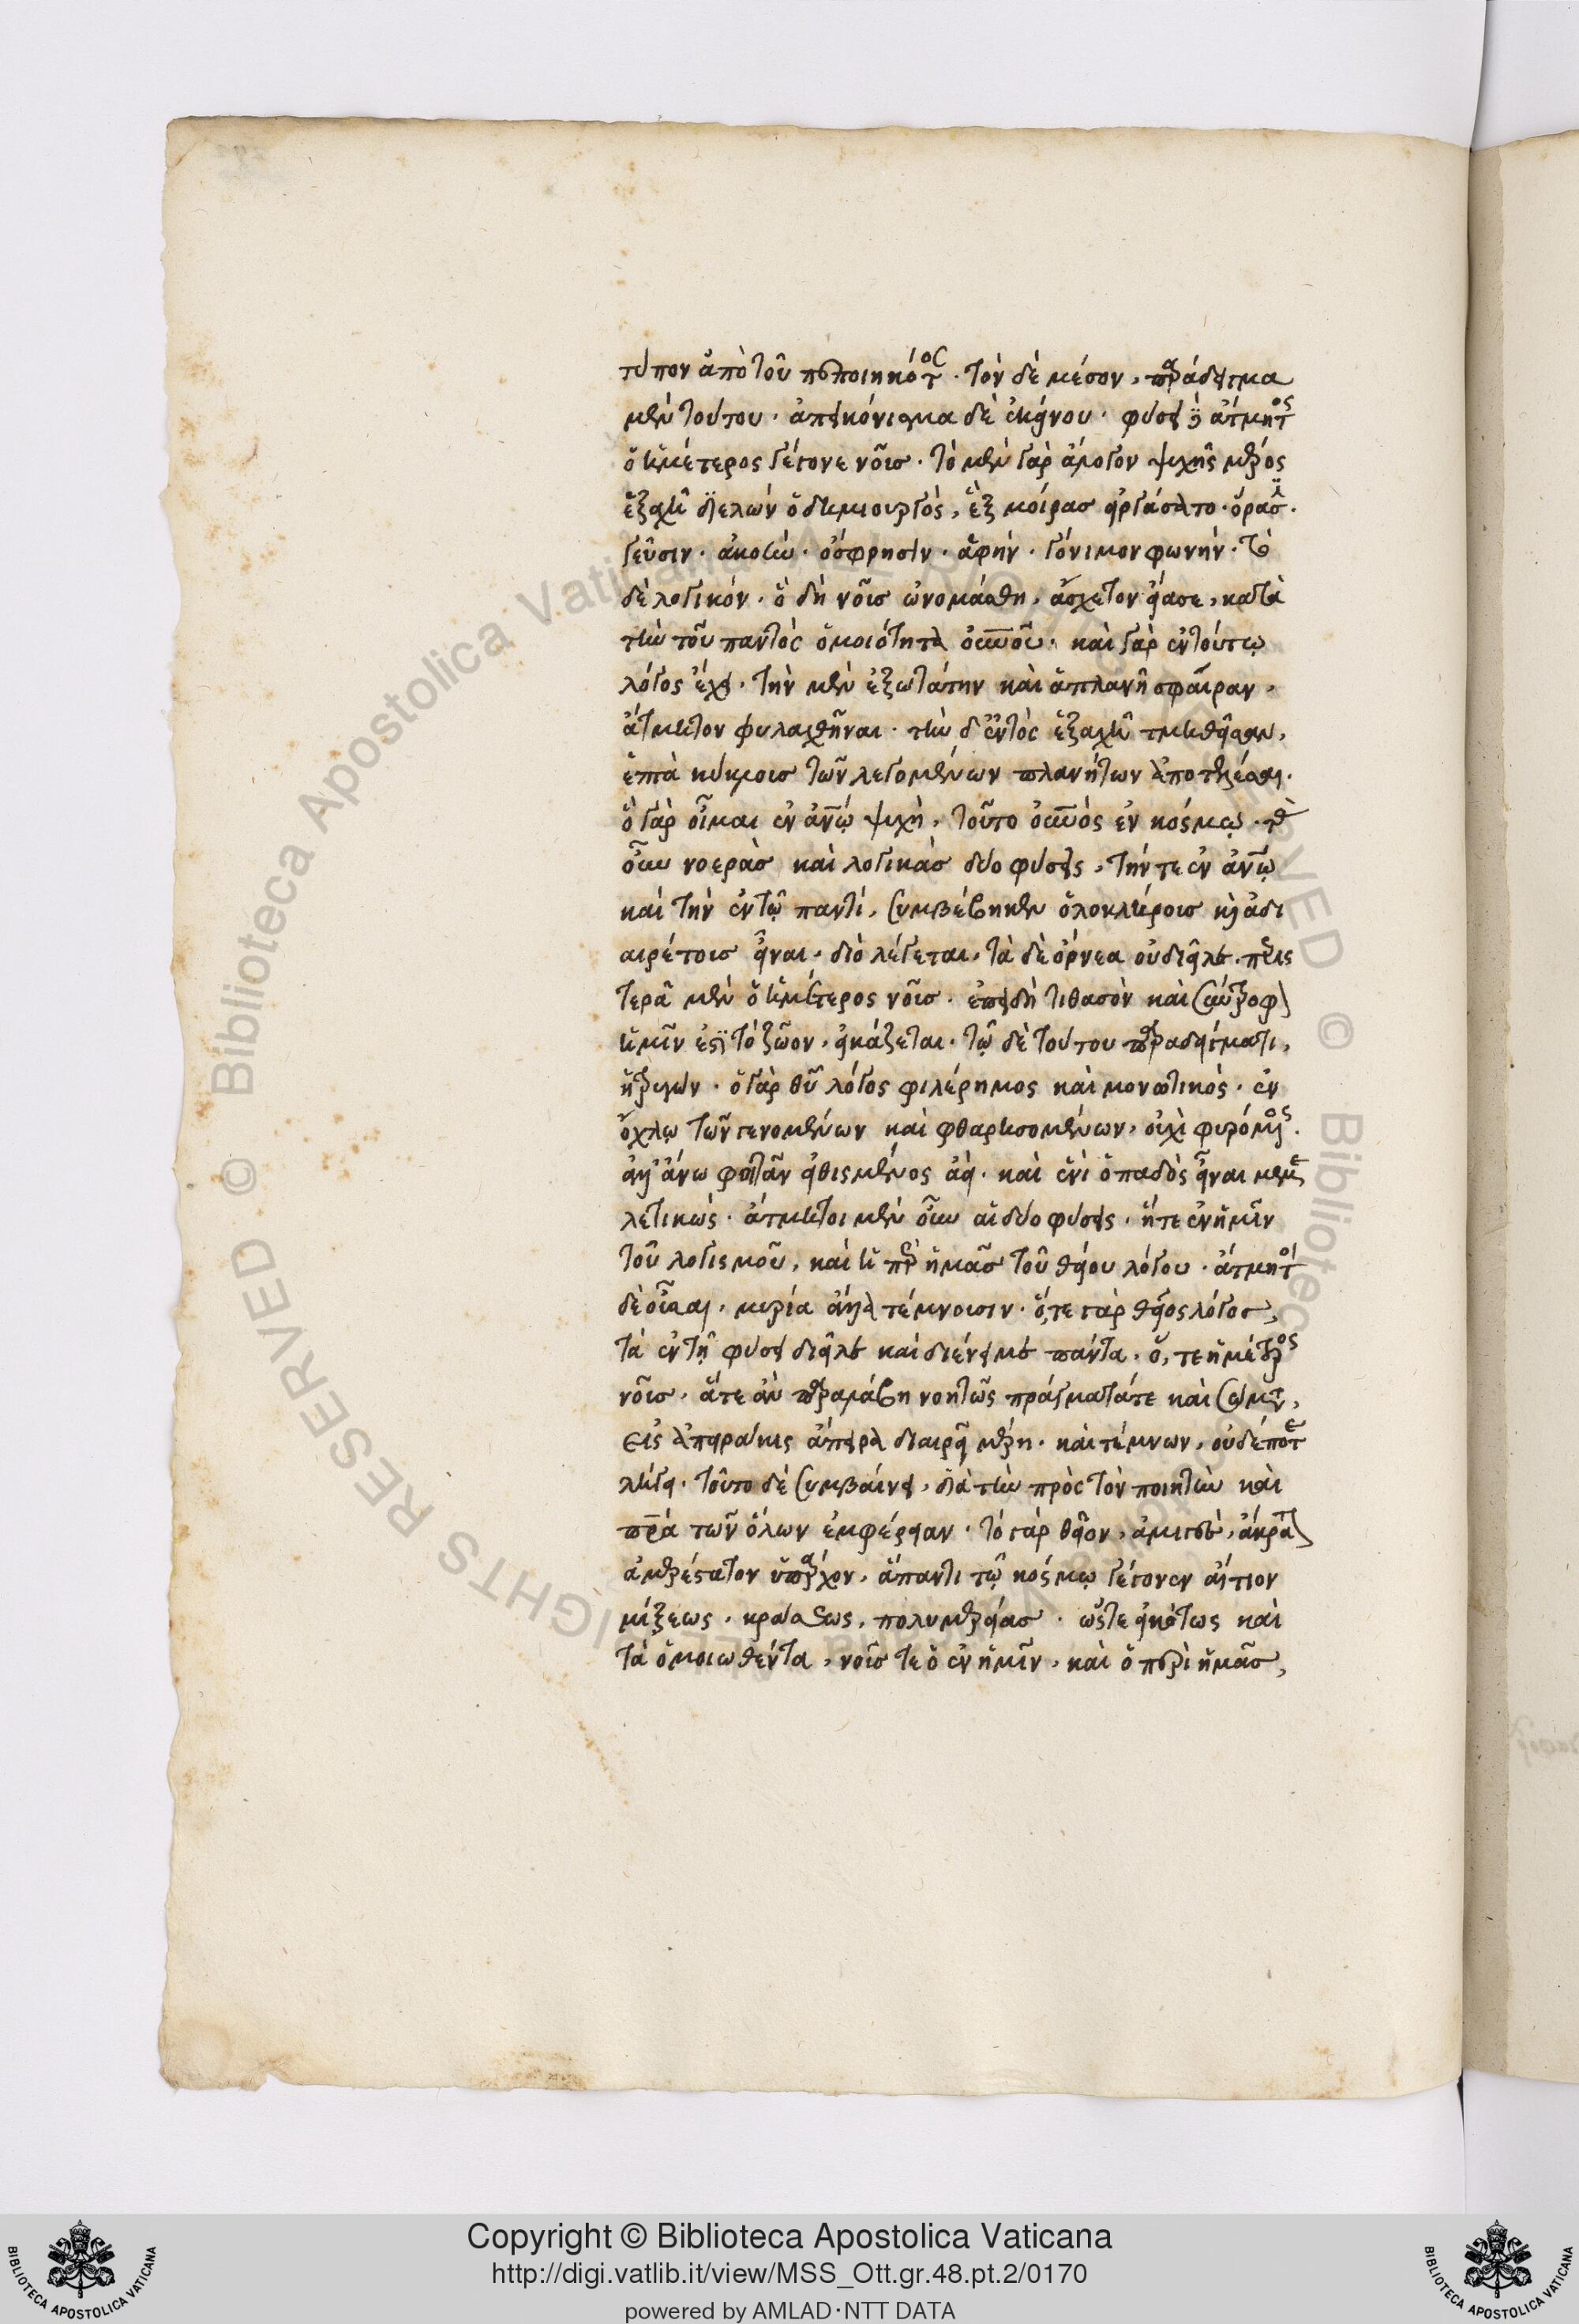 τύπον ἀπὸ τοῦ πεποιηκότος. τὸν δὲ μέσον, παράδειγμα
μὲν τούτου. ἀπεικόνισμα δὲ ἐκείνου. φύσει δὲ ἄτμητος
ὁ ἡμέτερος γέγονε νοῦς. τὸ μὲν γὰρ ἄλογον ψυχῆς μέρος
ἑξαχῆ διελὼν ὁ δημιουργὸς, ἓξ μοίρας εἰργάσατο. ὅρασιν.
γεῦσιν. ἀκοὴν. ὄσφρησιν. ἁφήν. γόνιμον φωνήν. τὸ
δὲ λογικόν. ὃ δὴ νοῦς ὠνομάσθη, ἄσχετον εἴασε, κατὰ
τὴν τοῦ παντὸς ὁμοιότητα οὐρανοῦ. καὶ γὰρ ἐν τούτῳ
λόγος ἔχει. τὴν μὲν ἐξωτάτην καὶ ἀπλανῆ σφαῖραν,
ἄτμητον φυλαχθῆναι. τὴν δ' ἐντὸς ἑξαχῆ τμηθεῖσαν,
ἑπτὰ κύκλους τῶν λεγομένων πλανήτων ἀποτελέσαι.
ὃ γὰρ οἶμαι ἐν ἀνθρώπῳ ψυχὴ, τοῦτο οὐρανὸς ἐν κόσμῳ. τὰς
οὖν νοερὰς καὶ λογικὰς δύο φύσεις, τήν τε ἐν ἀνθρώπῳ
καὶ τὴν ἐν τῷ παντὶ, συμβέβηκεν ὁλοκλήρους καὶ ἀδι
αιρέτους εἶναι. διὸ λέγεται, τὰ δὲ ὄρνεα οὐ διεῖλε. περις
τερᾷ μὲν ὁ ἡμέτερος νοῦς. ἐπειδὴ τιθασὸν καὶ σύντροφον
ἡμῖν ἐστὶ τὸ ζῶον, εἰκάζεται. τῷ δὲ τούτου παραδείγματι,
ἡ τρυγών. ὁ γὰρ θεοῦ λόγος φιλέρημος καὶ μονωτικός. ἐν
ὄχλῳ τῶν γενομένων καὶ φθαρησομένων, οὐχὶ φυρόμενος.
ἀλλ' ἄνω φοιτᾶν εἰθισμένος ἀεὶ. καὶ ἑνὶ ὀπαδὸς εἶναι μεμε
λετικώς. ἄτμητοι μὲν οὖν αἱ δύο φύσεις. ἥ τε ἐν ἡμῖν
τοῦ λογισμοῦ, καὶ ἡ ὑπὲρ ἡμᾶς τοῦ θείου λόγου. ἄτμητοι
δὲ οὖσαι, μυρία ἄλλα τέμνουσιν. ὅ, τε γὰρ θεῖος λόγος,
τὰ ἐν τῇ φύσει διεῖλε καὶ διένειμε πάντα. ὅ, τε ἡμέτερος
νοῦς. ἅτε ἂν παραλάβῃ νοητῶς πράγματά τε καὶ σώματα,
εἰς ἀπειράκις ἄπειρα διαιρεῖ μέρη. καὶ τέμνων, οὐδέποτε
λήγει. τοῦτο δὲ συμβαίνει, διὰ τὴν πρὸς τὸν ποιητὴν καὶ
πατέρα τῶν ὅλων ἐμφέρειαν. τὸ γὰρ θεῖον, ἀμιγὲς, ἄκρατον,
ἀμερέστατον ὑπάρχον, ἅπαντι τῷ κόσμῳ γέγονεν αἴτιον
μίξεως, κράσεως, πολυμερείας. ὥστε εἰκότως καὶ
τὰ ὁμοιωθέντα, νοῦς τε ὁ ἐν ἡμῖν, καὶ ὁ ὑπὲρ ἡμᾶς,
Copyright © Biblioteca Apostolica Vaticana
http://digi.vatlib.it/view/MSS_Ott.gr.48.pt.2/0170
powered by AMLAD·NTT DATA